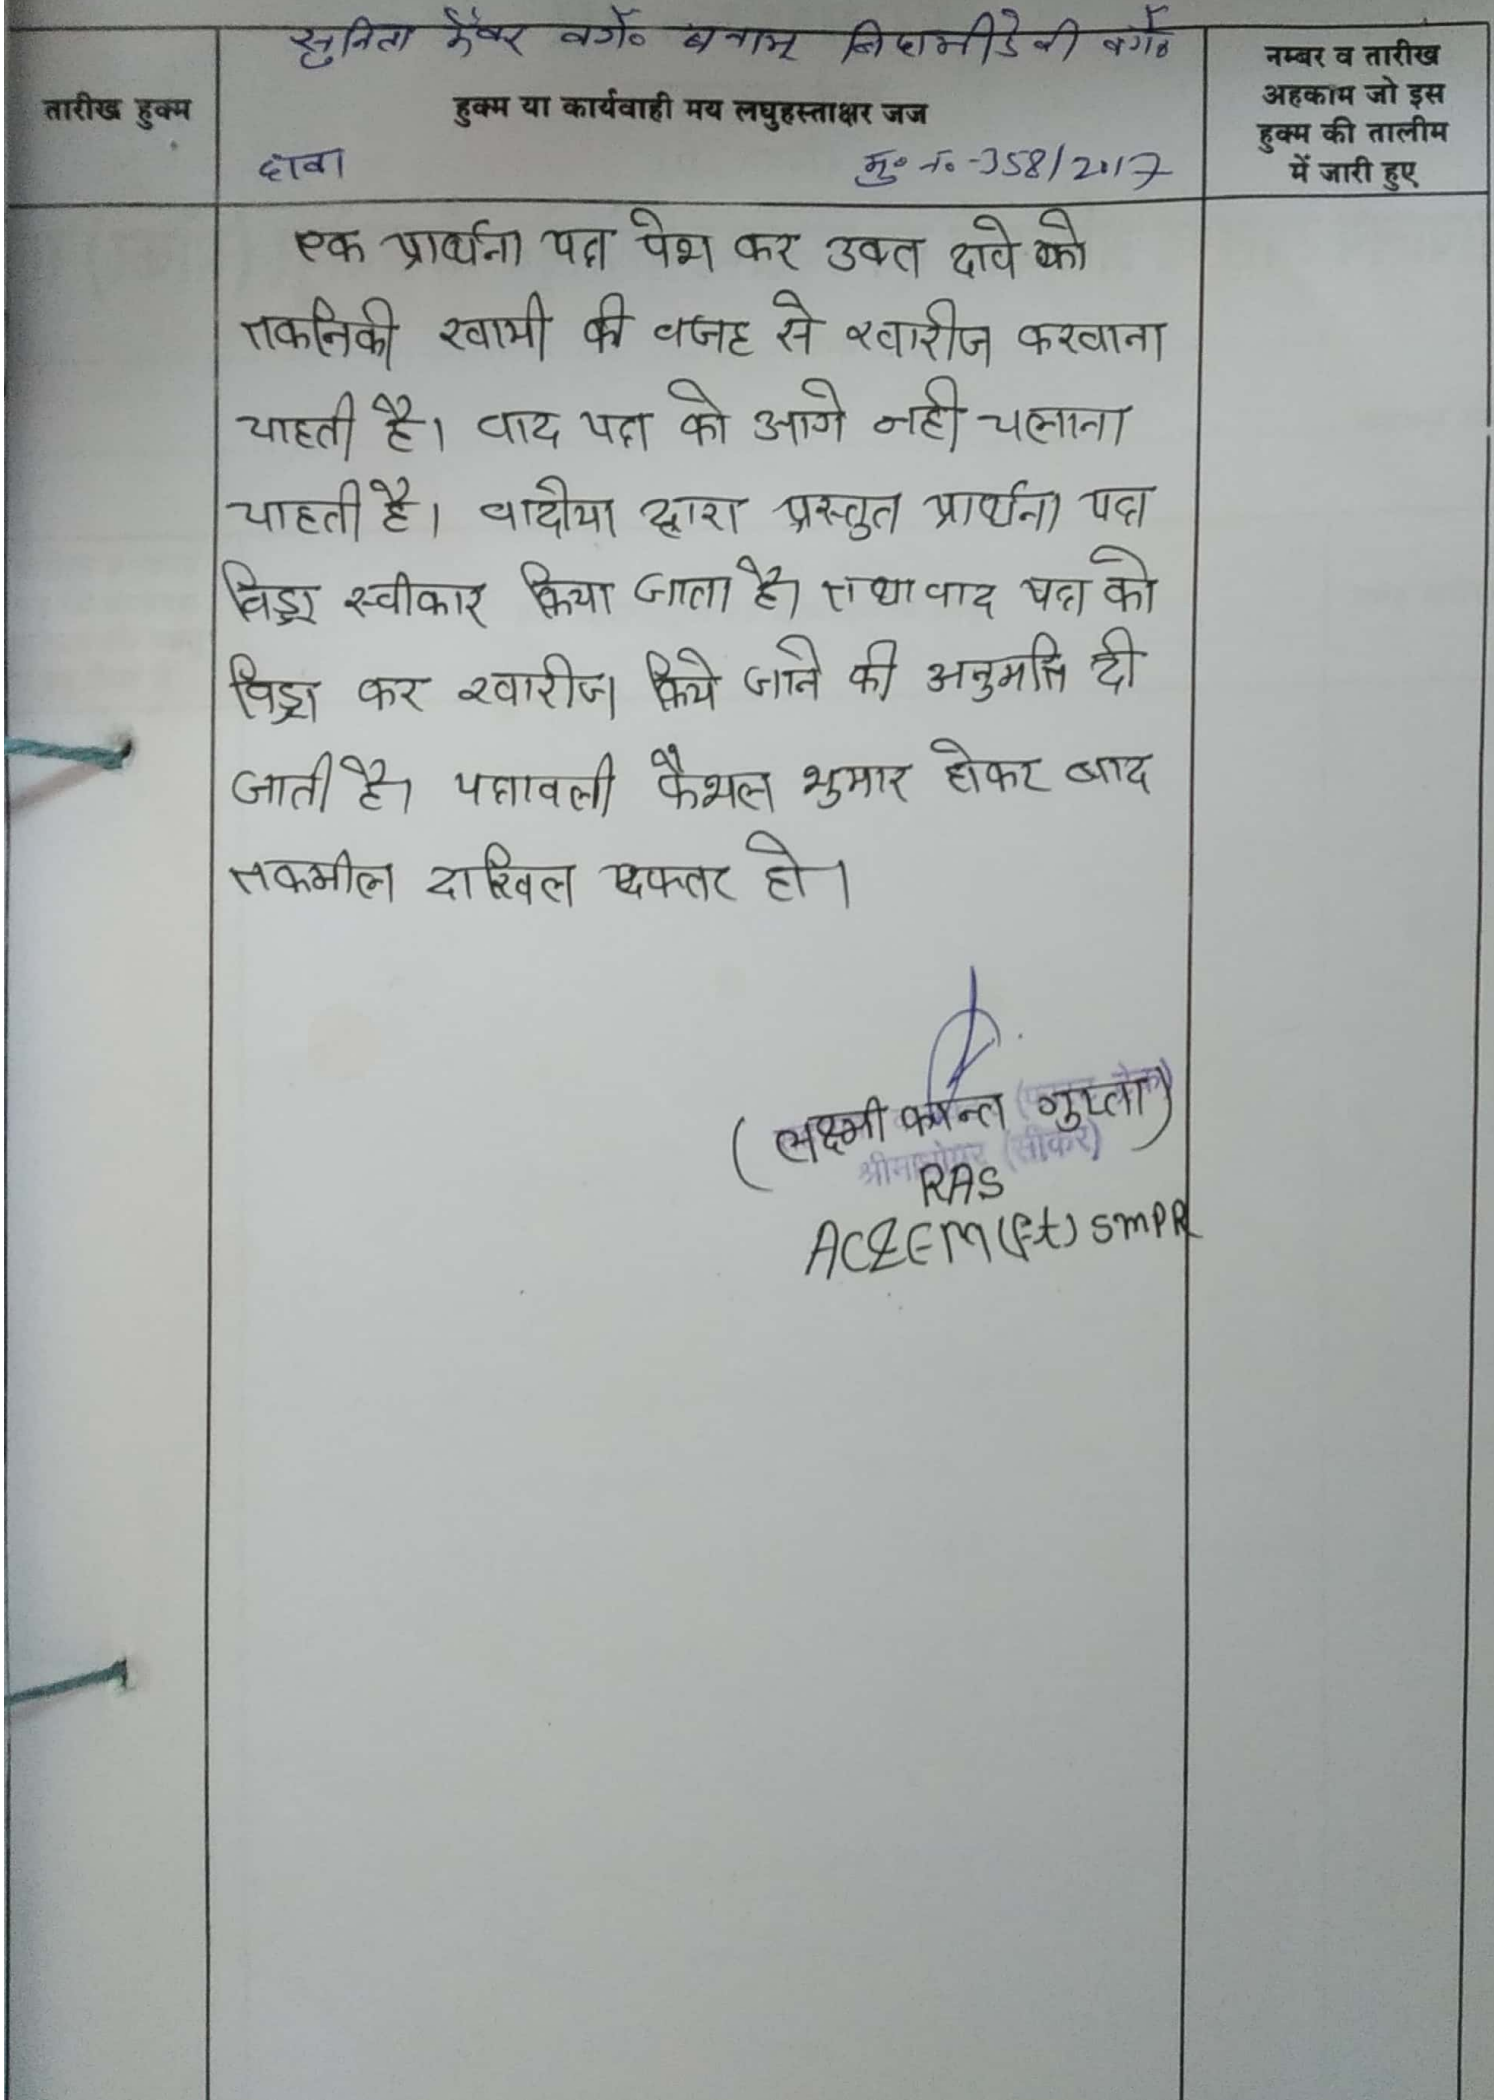 सुनिता कँवर वगै० बनाम निदामी देवी वगै०
तारीख हुक्म
हुक्म या कार्यवाही मय लघुहस्ताक्षर जज
नम्बर व तारीख
अहकाम जो इस
हुक्म की तालीम
में जारी हुए
दावा मु० न० -358/2017
एक प्रार्थना पत्र पेश कर उक्त दावे को
तकनिकी खामी की वजह से खारीज करवाना
चाहती है। वाद पत्र को आगे नही चलाना
चाहती है। वादीया द्वारा प्रस्तुत प्रार्थना पत्र
विड्रा स्वीकार किया जाता है। तथा वाद पत्र को
विड्रा कर खारीज किये जाने की अनुमति दी
जाती है। पत्रावली फैशल शुमार होकर बाद
तकमील दाखिल दफ्तर हो।
(लक्ष्मी कान्त गुप्ता)
श्रीमाधोपुर (सीकर)
RAS
ACEM (Ft) SMPR